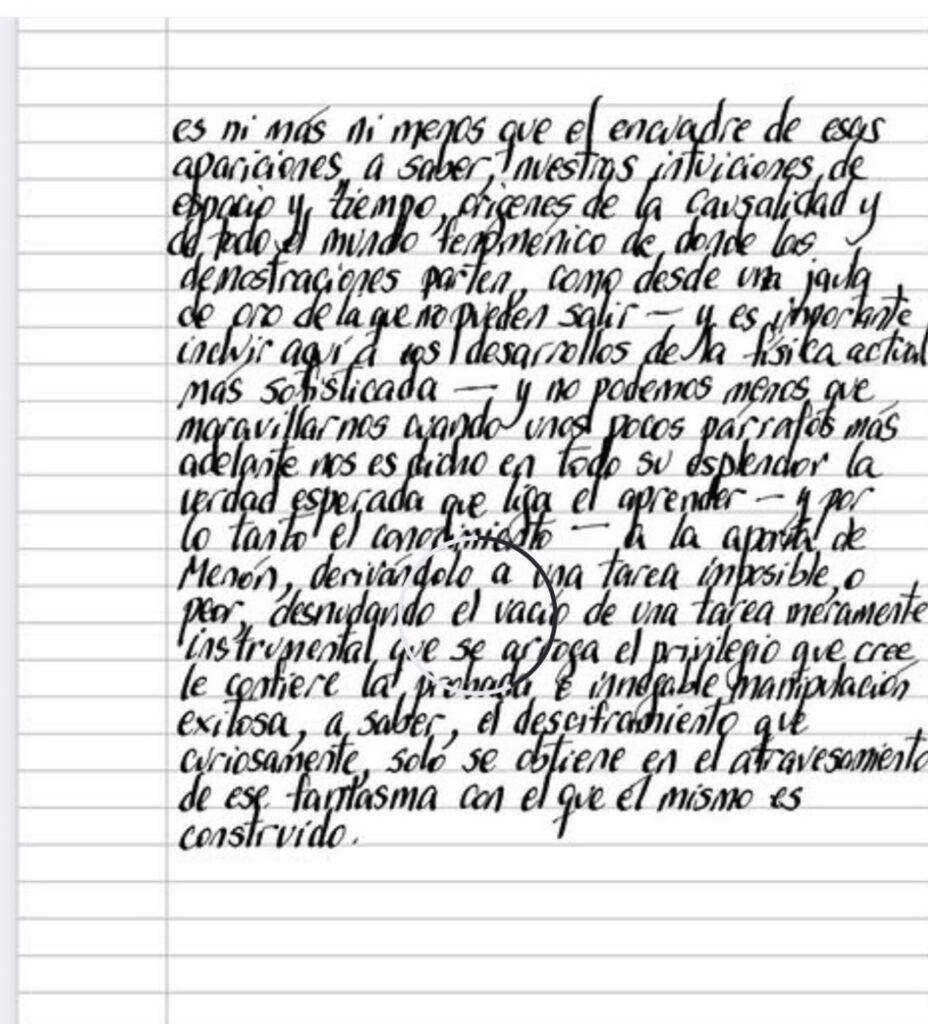 es ni más ni menos que el encuadre de esas
apariciones, a saber, nuestras intuiciones de
espacio y tiempo, orígenes de la causalidad y
de todo el mundo fenoménico de donde las
demostraciones parten, como desde una jaula
de oro de la que no pueden salir — y es importante
incluir aquí a los desarrollos de la física actual
más sofisticada — , y no podemos menos que
maravillarnos cuando unos pocos párrafos más
adelante nos es dicho en todo su esplendor la
verdad esperada que liga el aprender — y por
lo tanto el conocimiento — a la aporía de
Menón, derivándolo a una tarea imposible, o
peor, desnudando el vacío de una tarea meramente
instrumental que se arroga el privilegio que cree
le confiere la probada e innegable manipulación
exitosa, a saber, el desciframiento que
curiosamente, solo se obtiene en el atravesamiento
de ese fantasma con el que él mismo es
construído.